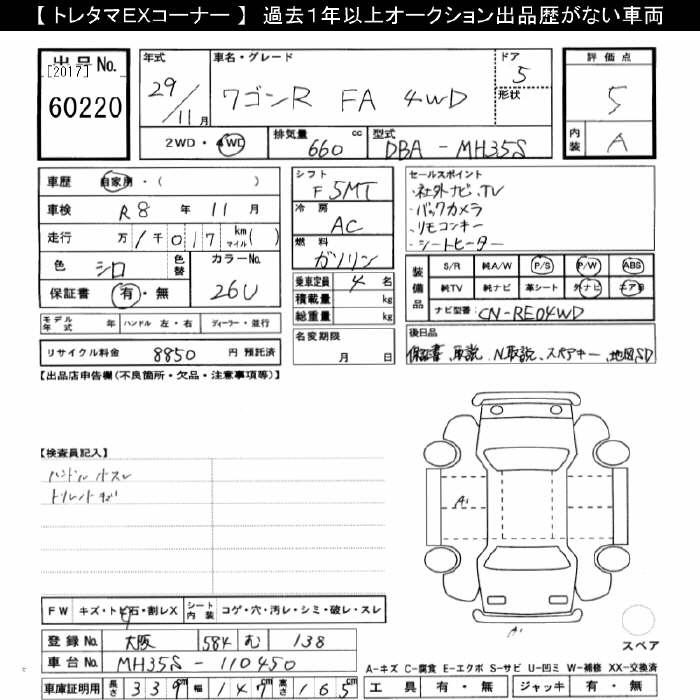 【 トレタマEXコーナー 】 過去1年以上オークション出品歴がない車両
出品No.
[2017]
60220
年式
29/11月
車名・グレード
ワゴンR FA 4WD
ドア
5
形状
評価点
5
内装
A
2WD・4WD
排気量
660 cc
型式
DBA - MH35S
車歴 自家用・( )
車検 R8年 11月
走行 万1千017 km マイル( )
色 シロ 色替 カラーNo.
26U
保証書 有・無
シフト
F 5MT
冷房
AC
燃料
ガソリン
乗車定員 4名
積載量 kg
総重量 kg
セールスポイント
・社外ナビ、TV
・バックカメラ
・リモコンキー
・シートヒーター
装備品
S/R 純A/W P/S P/W ABS
純TV 純ナビ 革シート 外ナビ エアB
ナビ型番 CN-RE04WD
モデル年式 年 ハンドル 左・右 ディーラー・並行
名変期限
月 日
後日品
保証書、取説、N取説、スペアキー、地図SD
リサイクル料金 8850 円 預託済
【出品店申告欄(不良箇所・欠品・注意事項等)】
【検査員記入】
ハンドルスレ
A1
A1
FW キズ・トビ石・割レX シート内装 コゲ・穴・汚レ・シミ・破レ・スレ
スペア
登録No. 大阪 584 む 138
車台No. MH35S - 110450
A-キズ C-腐食 E-エクボ S-サビ U-凹ミ W-補修 XX-交換済
車庫証明用 長さ 339cm 幅 147cm 高さ 165cm
工具 有・無 ジャッキ 有・無